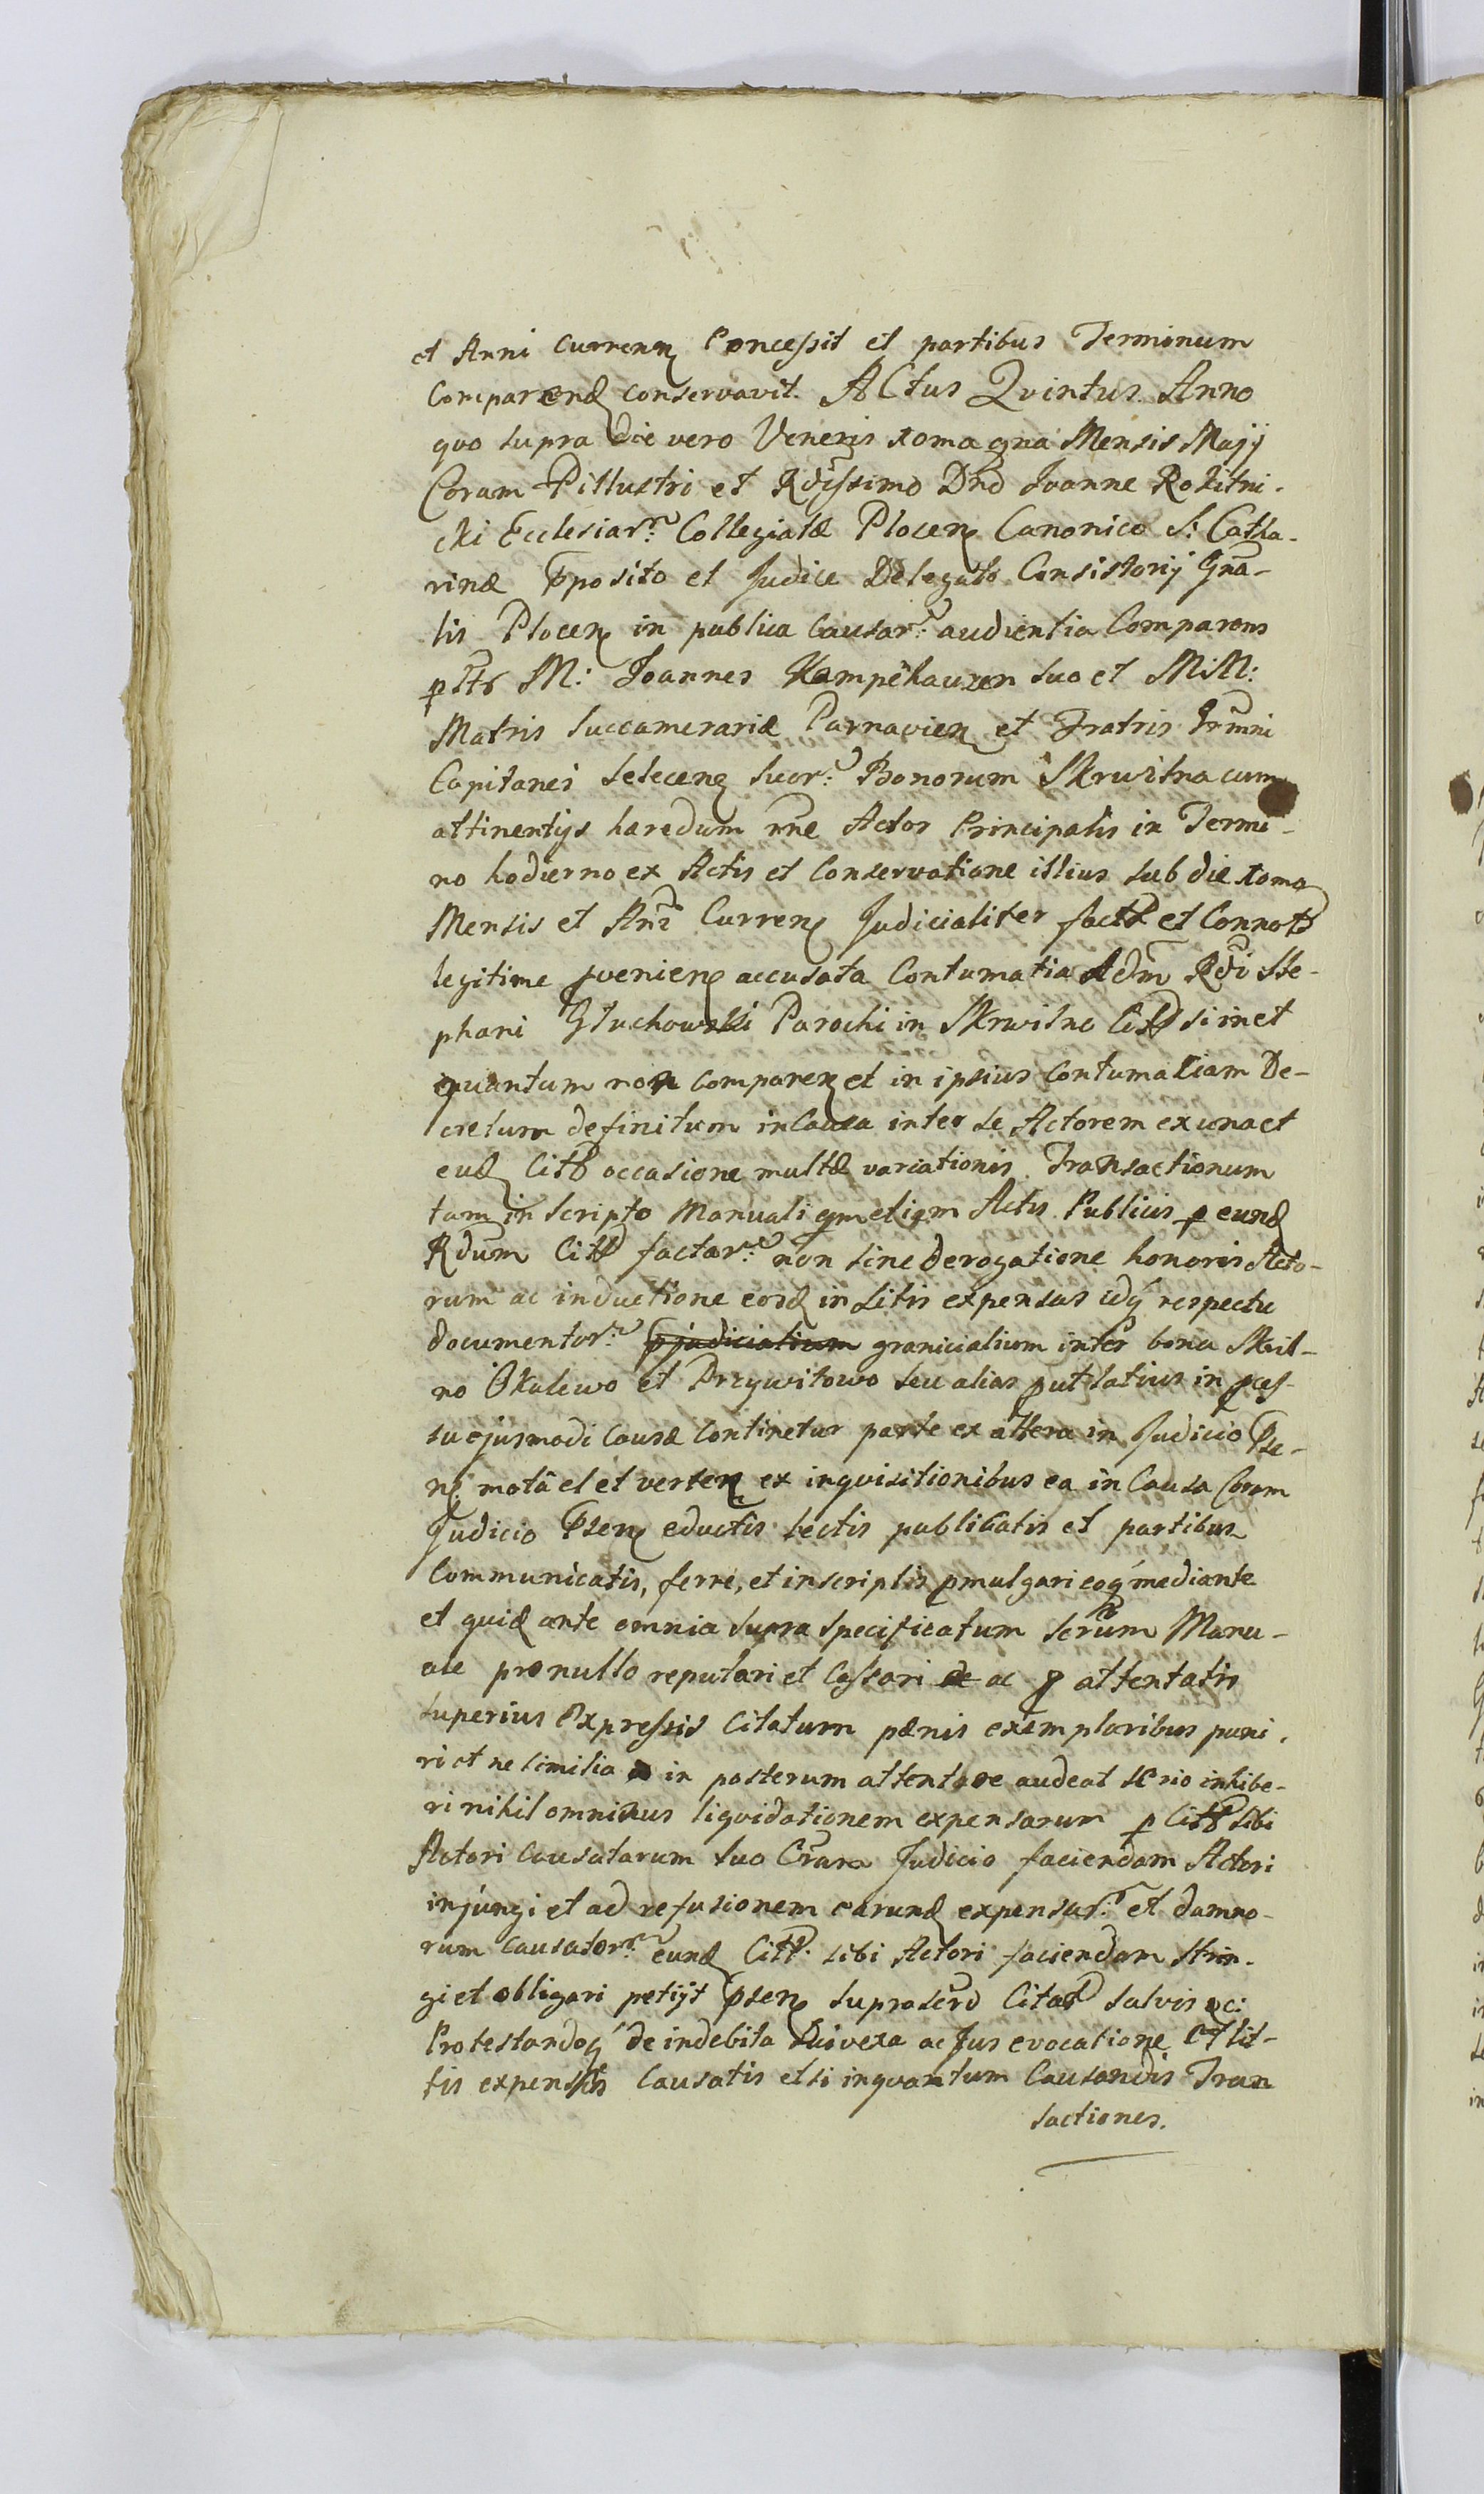 et Anni Currenȝ Concessit et partibus Terminum
Comparendȝ conservavit. ACtus Qvintus. Anno
qvo supra die vero Veneris xoma qna Mensis Majj
Coram Pillustri et Rdissimo Dno Joanne Rokitni-
cki Ecclesiar: Collegiatæ Plocenȝ Canonico S: Catha-
rinæ Pposito et Judice Delegato Consistorij Gna-
lis Plocenȝ in publica Causar: audientia Comparens
pstr M: Joannes Kampehauzen suo et MiM:
Matris Succamerariæ Parnavienȝ et Fratris Grmni
Capitanei Selecenȝ suor: Bonorum Skrwilna cum
attinentijs hæredum nne Actor Principalis in Termi-
no hodierno ex Actis et Conservatione illius sub die xoma
Mensis et Ani Currenȝ Judicialiter fact et Connot
legitime pvenienȝ accusata Contumatia Adm Rdi Ste-
phani Głuchowski Parochi in Skrwilno Citt si in et
qvantum non comparenȝ et in ipsius Contumaciam De-
cretum definitum in Causa inter se Actorem ex una et
eudȝ Citt occasione multæ variationis Transactionum
tam in Scripto Manuali qm etiam Actis Publicis p eundȝ
Rdum Citt factar: non sine derogatione honoris Acto-
rum ac inductione eordȝ in Litis expensas idq respectu
documentor: pjudicialium granicialium inter bona Skril-
no Okalewo et Przywitowo seu alias put latius in pces-
su ejusmodi Causæ Continetur parte ex altera in Judicio Pse-
nȝ mota et et vertenȝ ex inqvisitionibus ea in Causa Coram
Judicio Psenȝ eductis lectis publicatis et partibus
Communicatis, ferre, et in scriptis pmulgari eoq mediante
et quidȝ ante omnia supra specificatum scrum Manu-
ale pro nullo reputari et Cassari de ac p attentatis
superius Expressis Citatum pænis exemplaribus puni-
ri et ne similia in posterum attentare audeat serio inhibe-
ri nihilominus liqvidationem expensarum p Citt sibi
Actori Causatarum suo Coram Judicio faciendam Actori
injungi et ad refusionem earundȝ expensar: et damno-
rum causator: eundȝ Citt. sibi Actori faciendam Strin-
gi et obligari petijt psenȝ suprascro Citat salvis ac:
Protestandoq de indebita sui vexa ac Jus evocatione et lit-
tis expensis Causatis et si inqvantum Causandis Tran
sactiones.